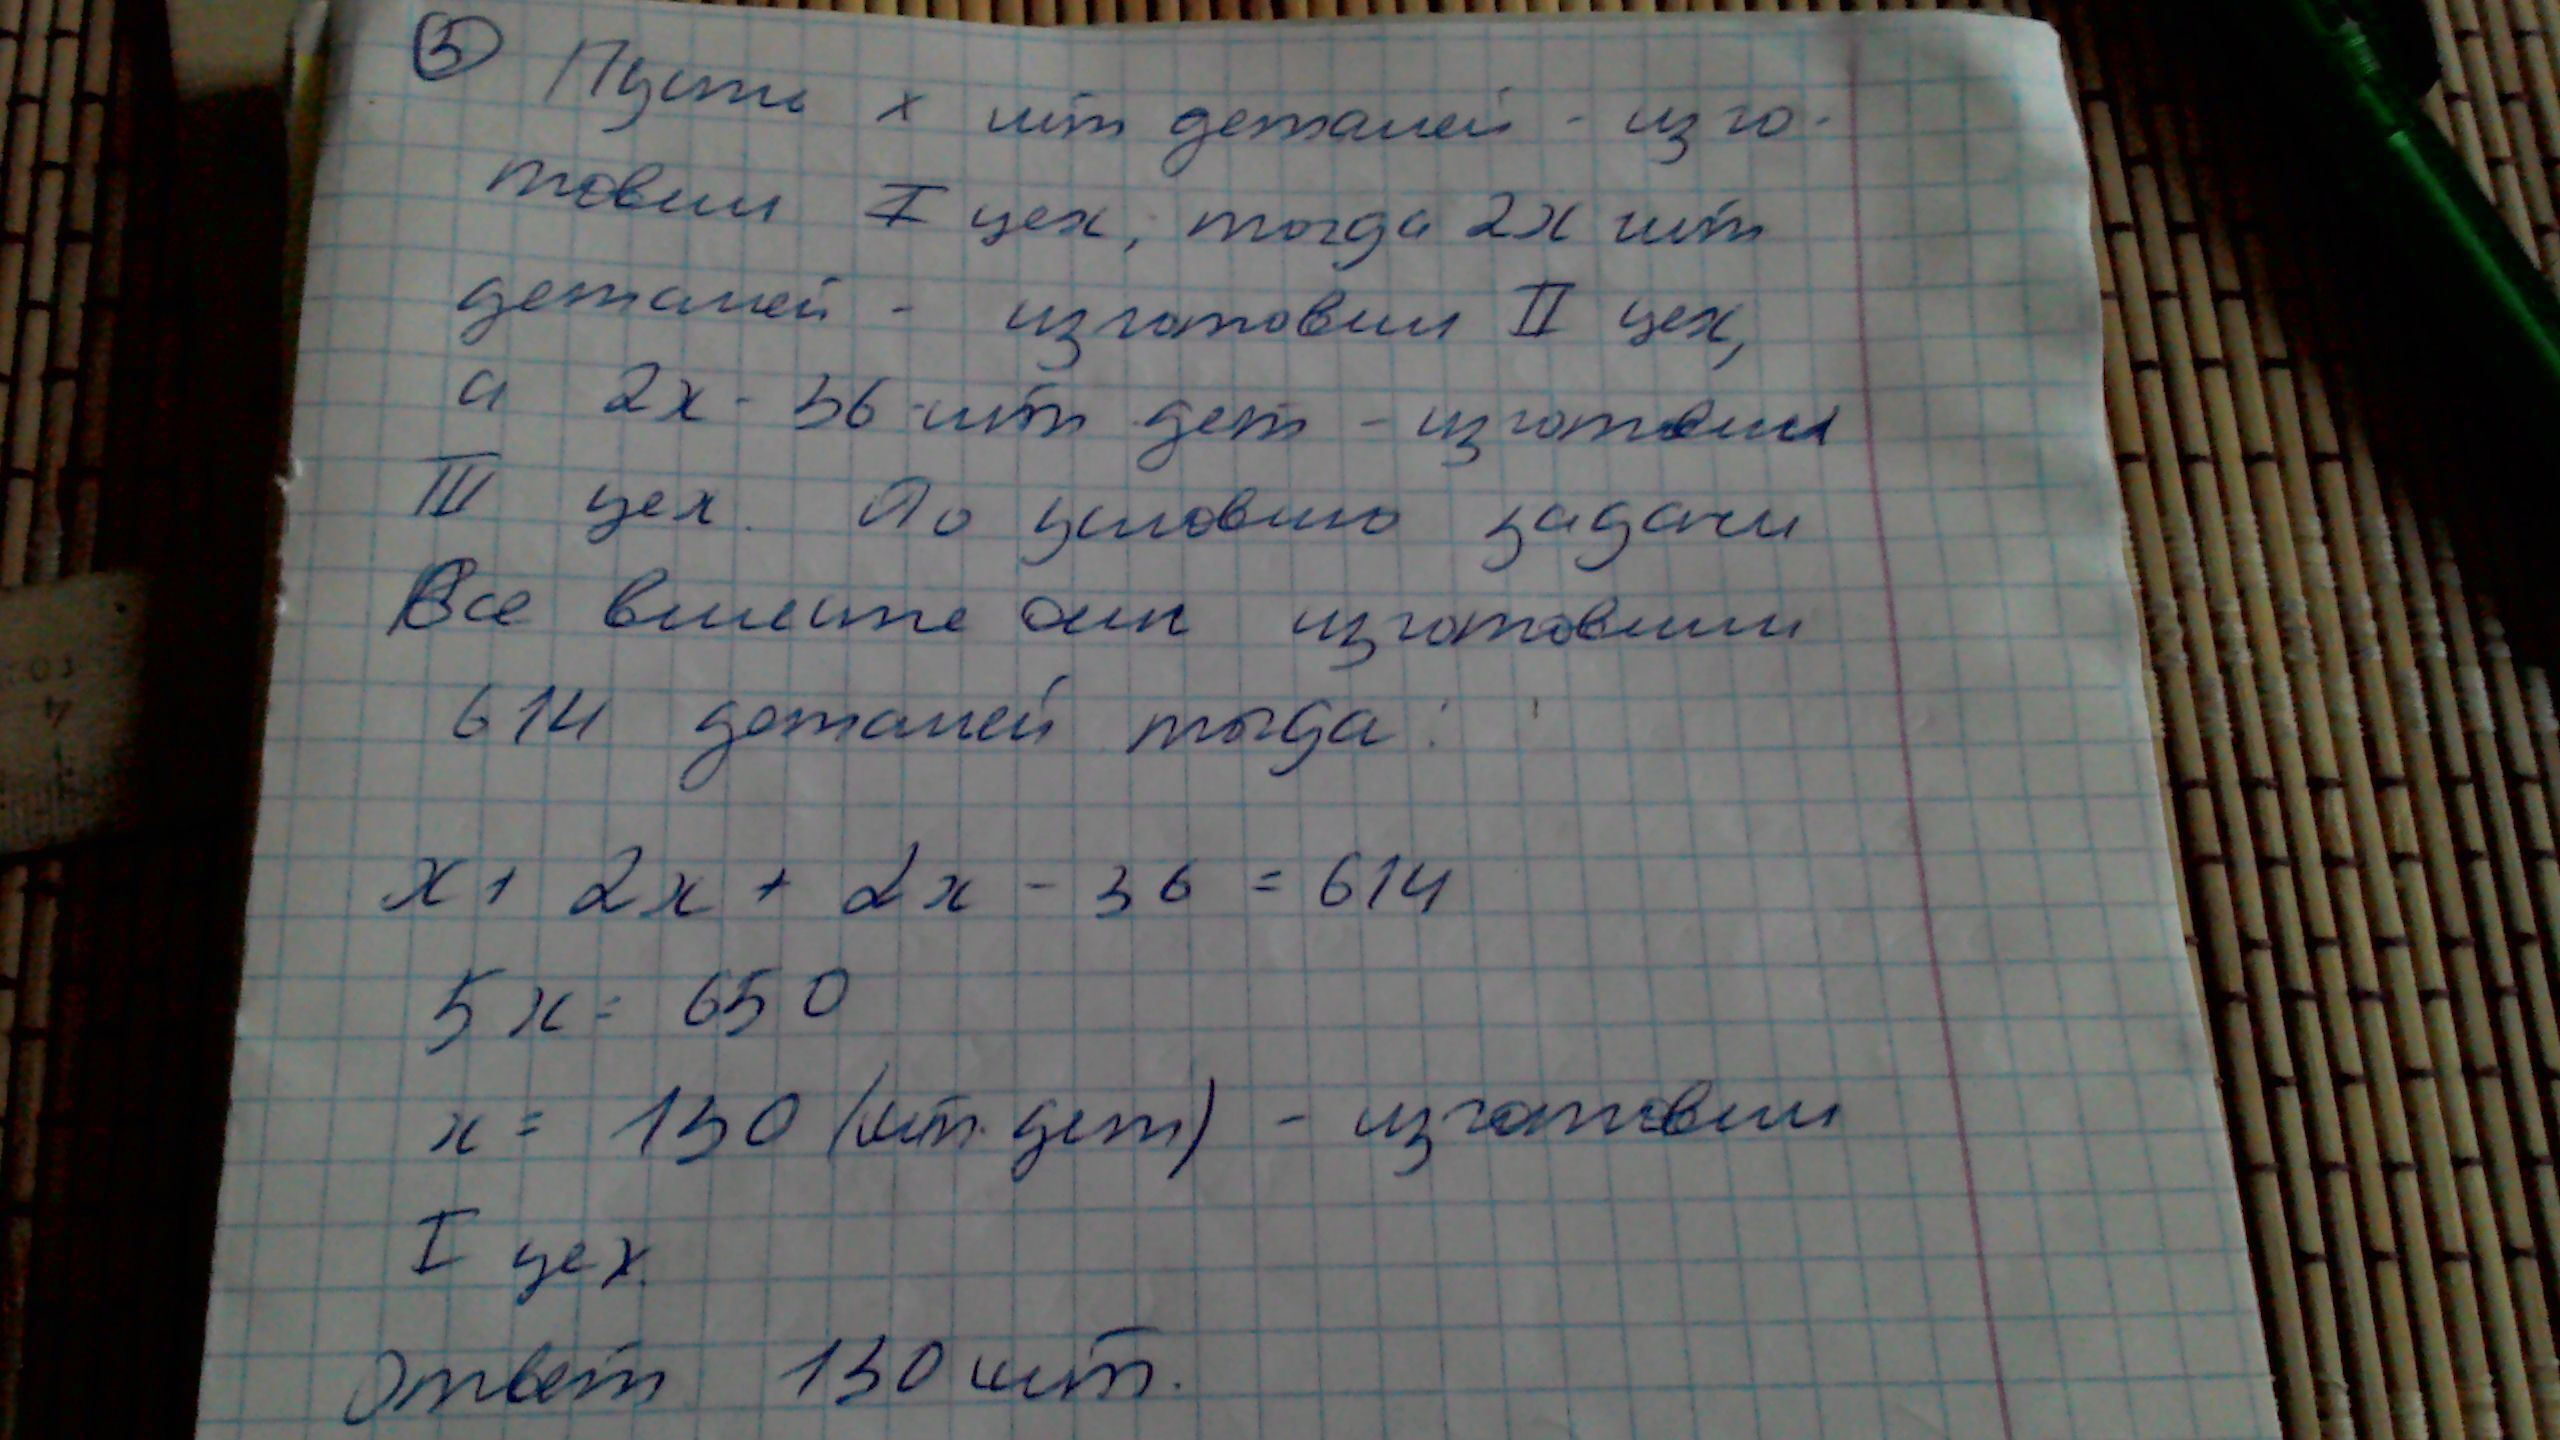 5 Пусть x шт деталей - изго-
товил I цех, тогда 2x шт
деталей - изготовил II цех,
а 2x - 36 шт дет - изготовил
III цех. По условию задачи
Все вместе они изготовили
614 деталей тогда:
x + 2x + 2x - 36 = 614
5x = 650
x = 130 (шт. дет) - изготовил
I цех.
Ответ 130 шт.